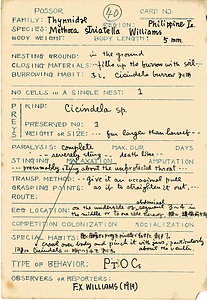 POSSOR CARD NO.
40
FAMILY: Thynnidae REGION: Philippine Is.
SPECIES: Methoca striatella Williams
BODY WEIGHT: BODY LENGTH: 5 mm
NESTING: in the ground
CLOSING MATERIALS: fills up the burrow with soil
BURROWING HABIT: Cicindela burrow
NO. CELLS IN A SINGLE NEST: 1
PREY
KIND: Cicindela sp.
PRESERVED NO.: 1
WEIGHT OR SIZE: far larger than
PARALYSIS: complete MAK. DUR. DAYS
severely sting death like
STINGING MALAXATION AMPUTATION
presumably stung about the unprotected throat
TRANSP. METHOD: give it an occasional pull
GRASPING POINTS: as if to straighten it out
ROUTE:
EGG LOCATION: on the underside of abdominal
the middle or to one side
COMPETITION COLONIZATION SOCIALIZATION
SPECIAL HABITS:
crawl over body and pinch it with jaws, particularly
about the
TYPE OF BEHAVIOR: PTOC
OBSERVERS OR REPORTERS:
F.X. WILLIAMS (1919)